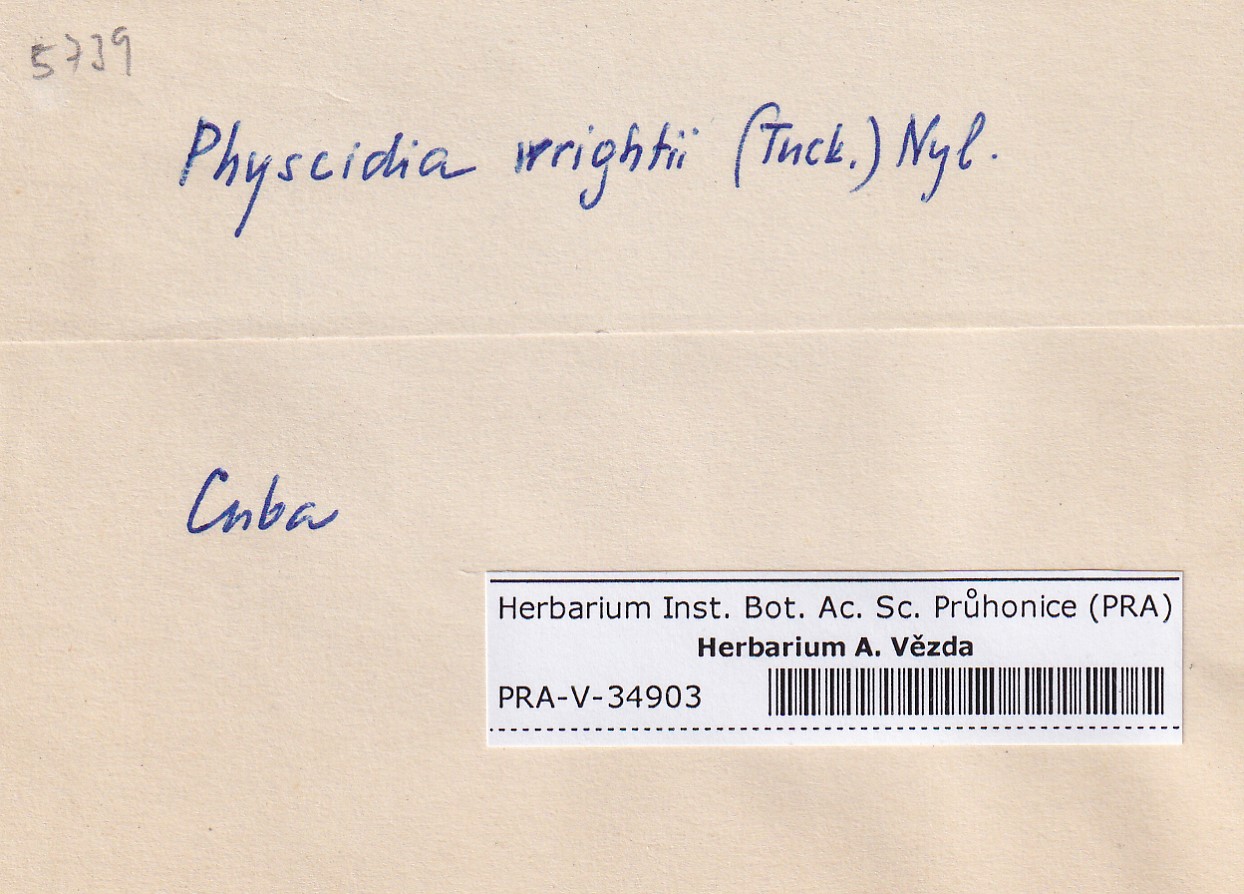 5739
Physcidia wrightii (Tuck.) Nyl.
Cuba
Herbarium Inst. Bot. Ac. Sc. Průhonice (PRA)
Herbarium A. Vězda
PRA-V-34903